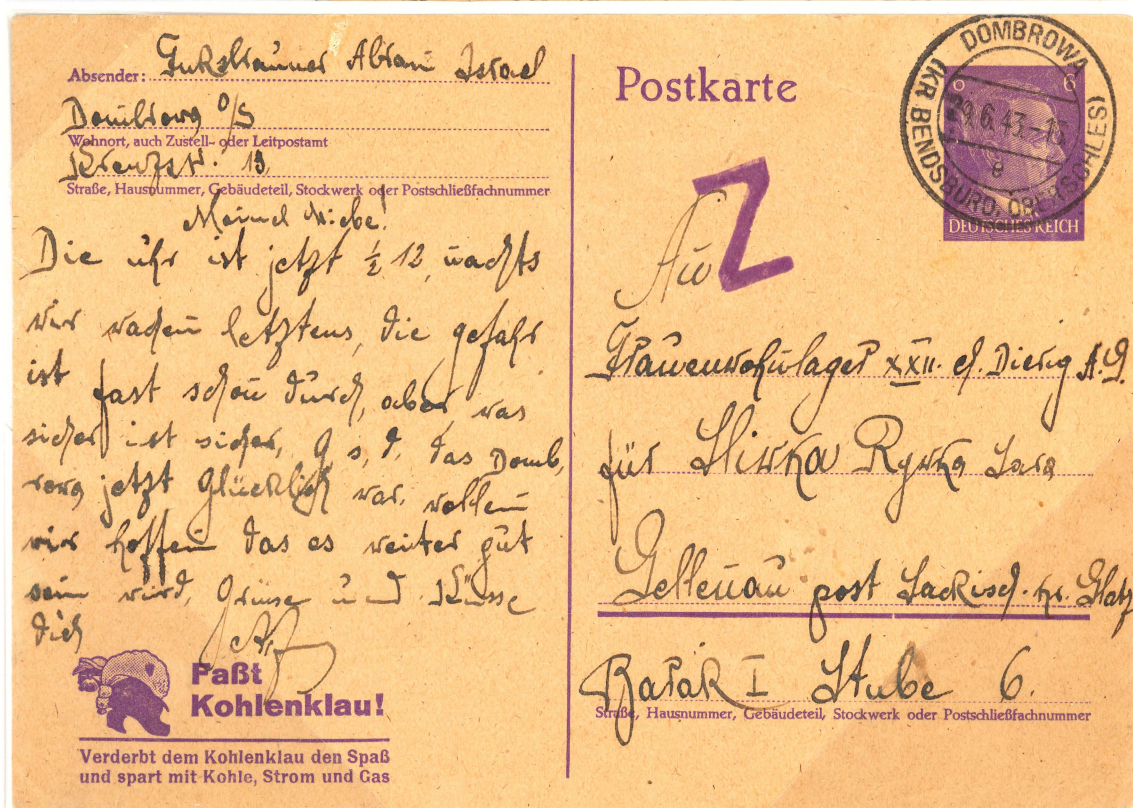 Absender: Abram Israel
Dombrowa O/S
Wohnort, auch Zustell- oder Leitpostamt
Kreuzstr. 19
Straße, Hausnummer, Gebäudeteil, Stockwerk oder Postschließfachnummer
Die uhr ist jetzt ½ 12, nachts
wir wachen letztens, die gefahr
ist fast schon durch, aber was
sicher ist sicher, G. s. d. das Domb,
rowa jetzt Glücklich war, wollen
wir hoffen das es weiter gut
sein wird, Grüsse und Küsse
dich
Paßt
Kohlenklau!
Verderbt dem Kohlenklau den Spaß
und spart mit Kohle, Strom und Gas
Postkarte
6 6
DEUTSCHES REICH
DOMBROWA
29.6.43.-15
e
(KR. BENDSBURG, OBERSCHLES)
Z
An
Frauenwohnlager XXII. ch. Dierig A.G.
für Sliwka Rywka Sara
Gellenau post Sackisch. kr. Glatz
Barak I Stube 6.
Straße, Hausnummer, Gebäudeteil, Stockwerk oder Postschließfachnummer